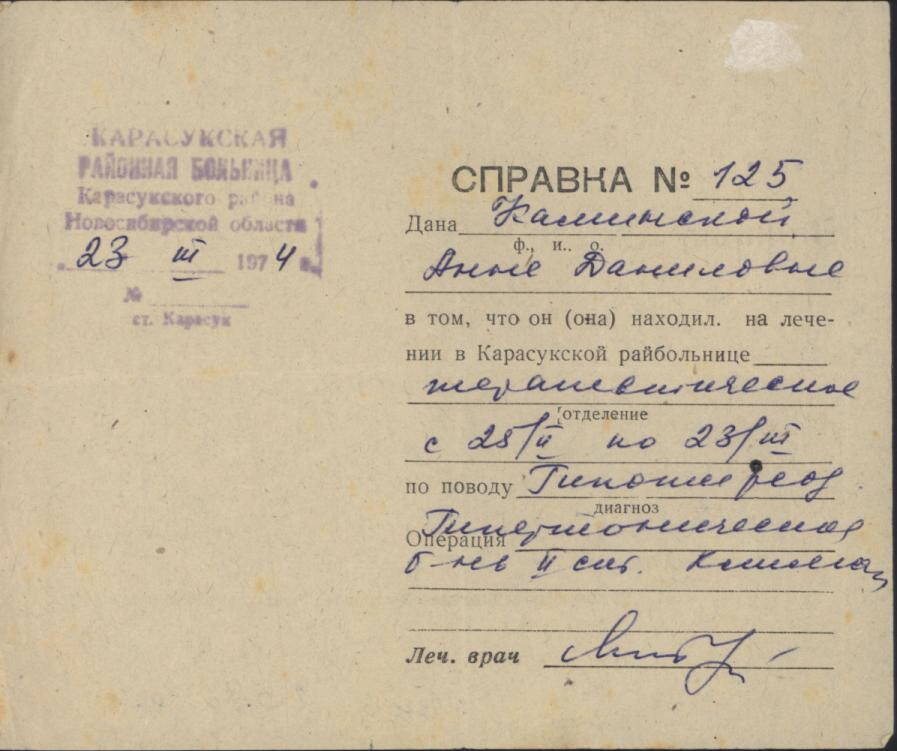 КАРАСУКСКАЯ
РАЙОННАЯ БОЛЬНИЦА
Карасукского района
Новосибирской области
„ 23 " III 1974 г.
№
ст. Карасук
СПРАВКА № 125
Дана Каминской
ф., и.. о.
Анне Даниловне
в том, что он (она) находил. на лече-
нии в Карасукской райбольнице
терапевтическое
отделение
с 25/II по 23/III
по поводу Гипотиреоз.
диагноз
Гипертоническая
Операция
б-нь II ст.
Леч. врач